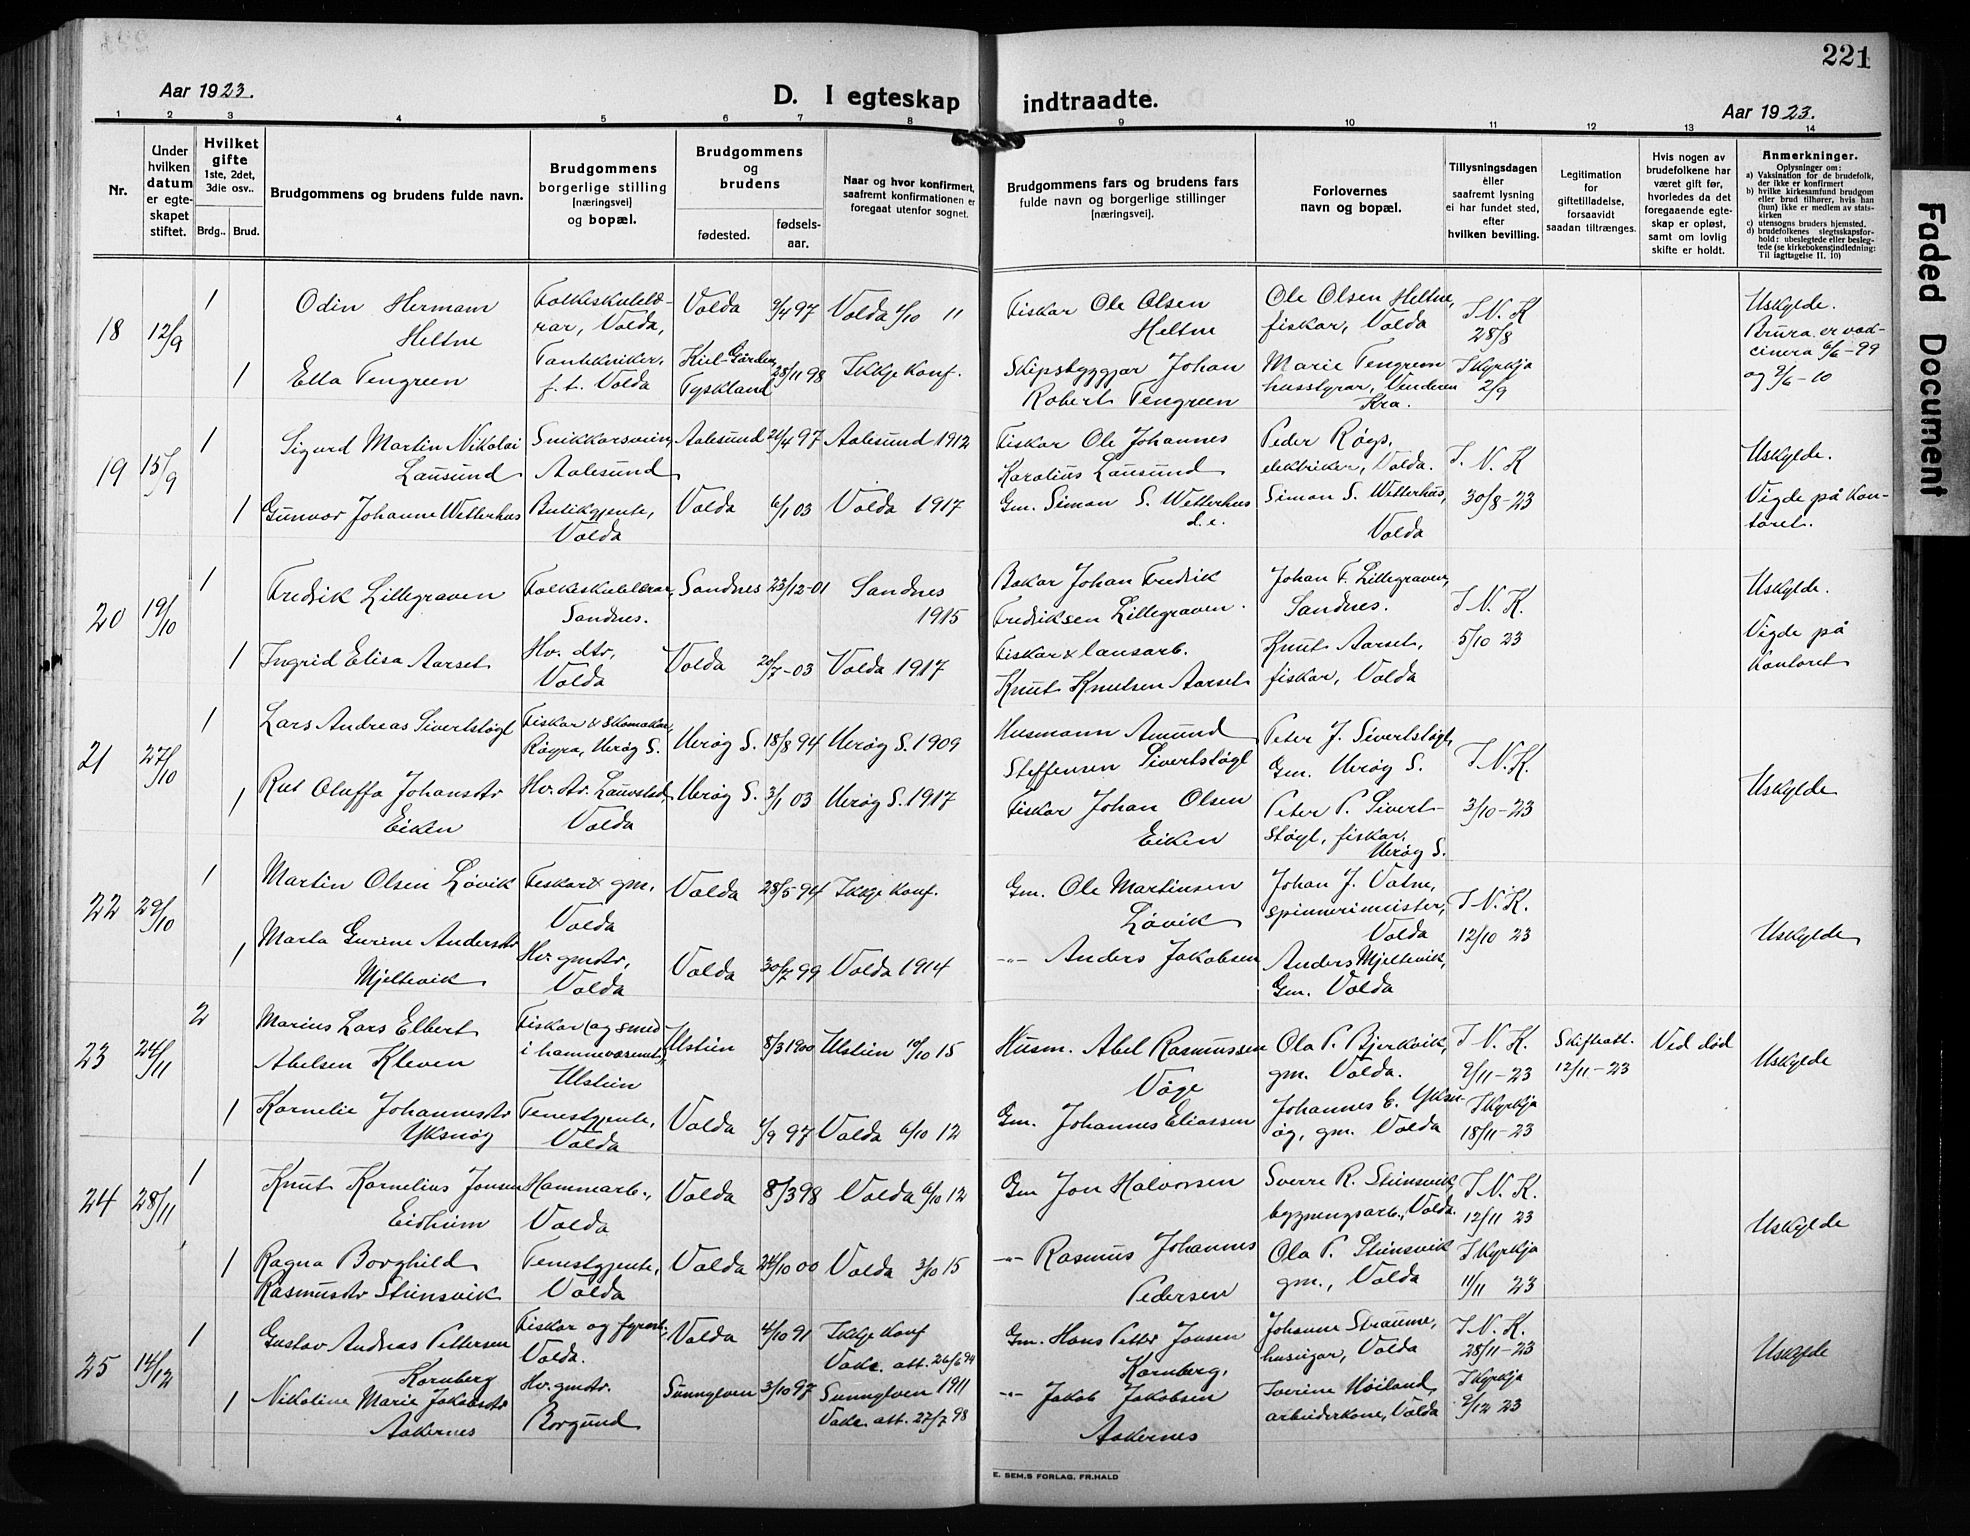 221
Aar 1923.
D. I egteskap indtraadte.
Aar 1923.
1 2 3 4 5 6 7 8 9 10 11 12 13 14
Nr.
Under hvilken datum er egteskapet stiftet.
Hvilket gifte 1ste, 2det, 3die osv..
Brdg.. Brud.
Brudgommens og brudens fulde navn.
Brudgommens borgerlige stilling [næringsvei] og bopæl.
Brudgommens og brudens
fødested.
fødselsaar.
Naar og hvor konfirmert, saafremt konfirmationen er foregaat utenfor sognet.
Brudgommens fars og brudens fars fulde navn og borgerlige stillinger [næringsvei].
Forlovernes navn og bopæl.
Tillysningsdagen eller saafremt lysning ei har fundet sted, efter hvilken bevilling.
Legitimation for giftetilladelse, forsaavidt saadan tiltrænges.
Hvis nogen av brudefolkene har været gift før, hvorledes da det foregaaende egteskap er opløst, samt om lovlig skifte er holdt.
Anmerkninger.
Oplysninger om:
a) Vaksination for de brudefolk, der ikke er konfirmert
b) hvilke kirkesamfund brudgom eller brud tilhører, hvis han (hun) ikke er medlem av statskirken
c) utensogns bruders hjemsted.
d) brudefolkenes slegtsskapsforhold: ubeslegtede eller beslegtede (se kirkebokens indledning: Til iagttagelse II. 10)
18 12/9
1 Odin Hermann Heltne
Folkeskulelærar, Volda,
Volda 9/4 97 Volda 1/10 11
Fiskar Ole Olsen Heltne
Ole Olsen Heltne, fiskar, Volda
I N. K 28/8
Uskylde. Brura er vaccinera 6/6-99 og 9/6-10
1 Ella Tengreen
Tanntekniker, f. t. Volda
Kiel-Gården Tyskland 28/11 98 Ikkje konf.
Skipsbyggjar Johan Robert Tengreen
Marie Tengreen husstyrar, Vinderen Kra.
I Kyrkja 2/9
19 15/9
1 Sigurd Martin Nikolai Lausund
Snikkarsvein, Aalesund
Aalesund 21/4 97 Aalesund 1912
Fiskar Ole Johannes Karolius Lausund
Peder Røgs, elektriker, Volda.
I. N. K 30/8-23
Uskylde. Vigde på kontoret.
1 Gunvor Johanne Wetterhus
Butikgjente, Volda
Volda 6/1 03 Volda 1917
Gm. Simon S. Wetterhus d. e.
Simon S. Wetterhus, Volda
20 19/10
1 Fredrik Lillegraven
Folkeskulelærar, Sandnes.
Sandnes 23/12-01 Sandnes 1915
Bakar Johan Fredrik Fredriksen Lillegraven.
Johan F. Lillegraven, Sandnes.
I N. K. 5/10 23
Uskylde. Vigde på kontoret
1 Ingrid Elisa Aarset
Hv. dtr, Volda
Volda 20/7-03 Volda 1917
Fiskar & lausarb. Knut Knutsen Aarset
Knut Aarset, fiskar, Volda
21 27/10
1 Lars Andreas Sivertstøgl
Fiskar & skomakar, Røyra, Herøy S.
Herøy S. 18/8 94 Herøy S. 1909
Husmann Amund Steffensen Sivertstøgl
Peter J. Sivertstøgl, Gm. Herøy S.
I N. K. 3/10-23
Uskylde
1 Rut Oluffa Johansdtr Eiken
Hv. dtr. Lauvstad, Volda
Herøy S. 3/1 03 Herøy S. 1917
Fiskar Johan Olsen Eiken
Peter P. Sivertstøgl, fiskar, Herøy S.
22 29/10
1 Martin Olsen Løvik
Fiskar & gm. Volda
Volda 28/5 94 Ikkje konf.
Gm. Ole Martinsen Løvik
Johan J. Vatne, spinnerimeister, Volda
I N. K. 12/10 23
Uskylde
1 Marta Gurine Andersdtr Mjeltevik
Hv. gmdtr, Volda
Volda 30/7 99 Volda 1914
-"- Anders Jakobsen
Anders Mjeltevik, Gm. Volda
23 24/11
2 Marius Lars Elbert Abelsen Kleven
Fiskar (og smed i hamnevæsenet), Ulstein
Ulstein 8/3 1900 Ulstein 10/10 15
Husm. Abel Rasmussen Våge
Ola P. Bjerkvik, gm. Volda.
I N. K. 9/11-23
Skifteatt. 12/11-23
Ved død
Uskylde
1 Kornelie Johannesdtr Yksnøy
Tenestgjente, Volda
Volda 1/9 97 Volda 6/10 12
Gm. Johannes Eliassen
Johannes E. Yksnøy, gm. Volda
I Kyrkja 18/11-23
24 28/11
1 Knut Kornelius Jonsen Eidheim
Hamnearb., Volda
Volda 8/3 98 Volda 6/10 12
Gm Jon Halvorsen
Sverre R. Steinsvik, bygningsarb., Volda.
I N. K. 12/11 23
Uskylde
1 Ragna Borghild Rasmusdtr Steinsvik
Tenestgjente, Volda
Volda 24/10 00 Volda 3/10 15
-"- Rasmus Johannes Pedersen
Ola P. Steinsvik gm., Volda
I Kyrkja 11/11 23
25 14/12
1 Gustav Andreas Pettersen Kornberg
Fiskar og Volda.
Volda 4/10 91 Ikkje konf Vakc. att. 26/6 94
Gm. Hans Petter Jonsen Kornberg,
Johanne Straume, husvigar, Volda
I. N. K. 28/11-23
Uskylde
1 Nikoline Marie Jakobsdtr Aakernes
Hv. gmdtr. Borgund
Sunnylven 3/10 97 Sunnylven 1911 Vakc. att. 27/7 98
-"- Jakob Jakobsen Aakernes
Severine Høiland, arbeiderkone, Volda
I Kyrkja 2/12 23
E. SEM.S FORLAG, FR.HALD
Faded Document